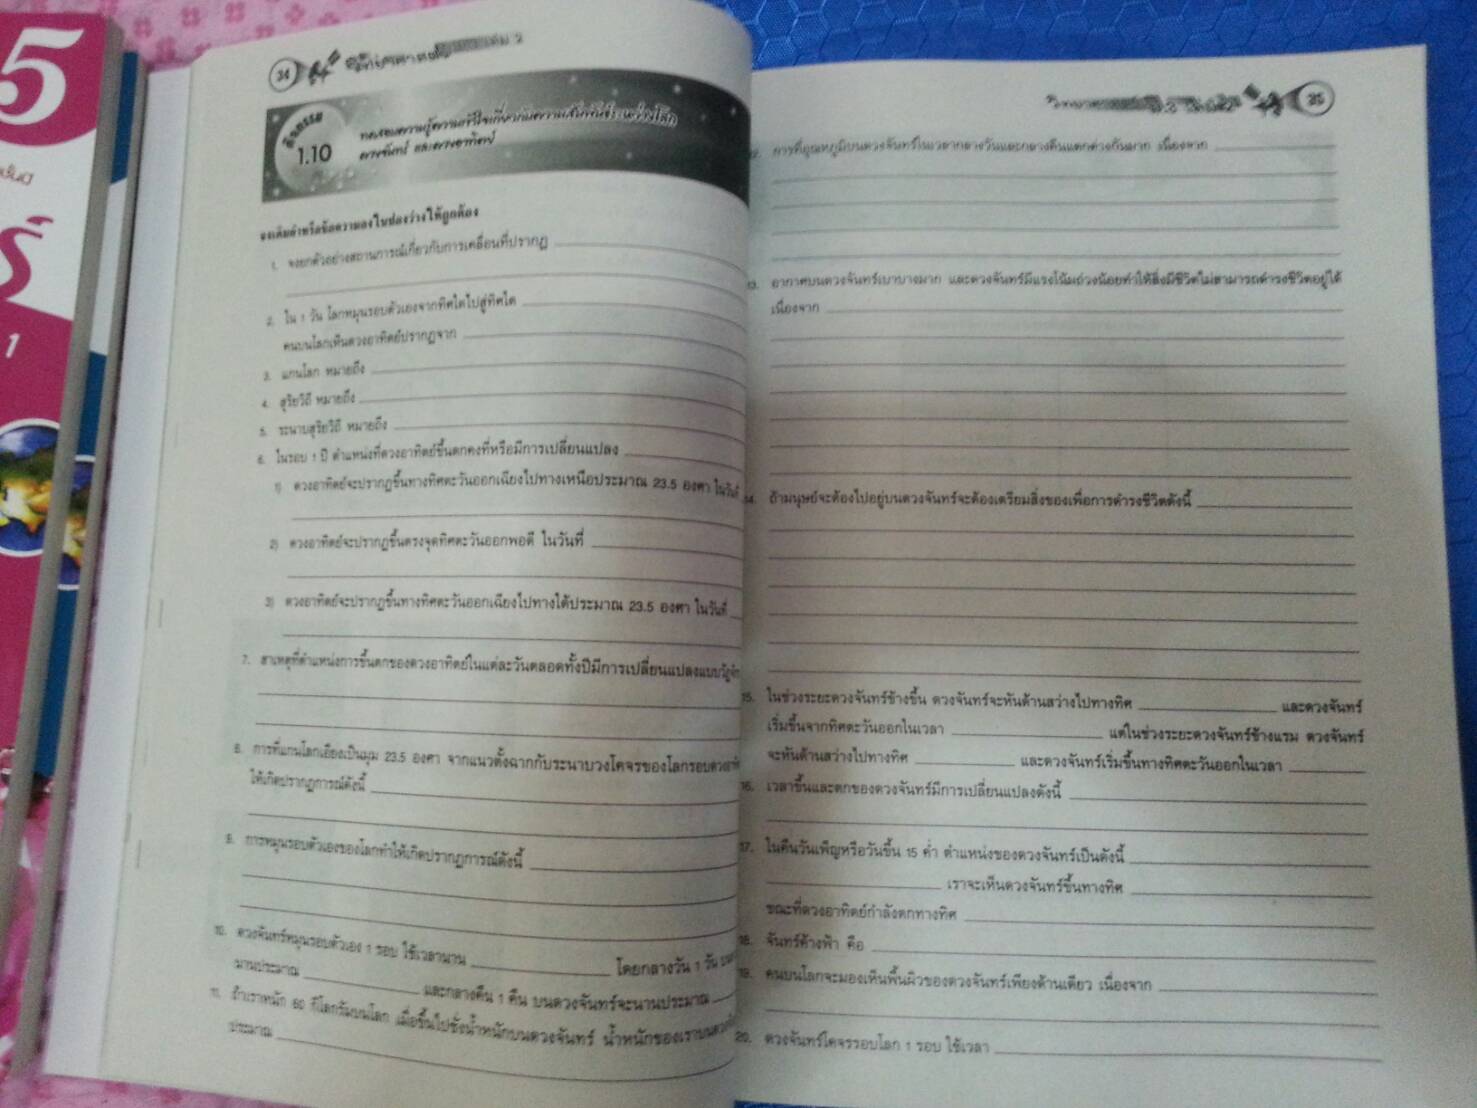 5
1
34
เล่ม 2
กิจกรรม
1.10
ทดสอบความรู้ความเข้าใจเกี่ยวกับความสัมพันธ์ระหว่างโลก
ดวงจันทร์ และดวงอาทิตย์
จงเติมคำหรือข้อความลงในช่องว่างให้ถูกต้อง
1. จงยกตัวอย่างสถานการณ์เกี่ยวกับการเคลื่อนที่ปรากฏ
2. ใน 1 วัน โลกหมุนรอบตัวเองจากทิศใดไปสู่ทิศใด
คนบนโลกเห็นดวงอาทิตย์ปรากฏจาก
3. แกนโลก หมายถึง
4. สุริยวิถี หมายถึง
5. ระนาบสุริยวิถี หมายถึง
6. ในรอบ 1 ปี ตำแหน่งที่ดวงอาทิตย์ขึ้นตกคงที่หรือมีการเปลี่ยนแปลง
1) ดวงอาทิตย์จะปรากฏขึ้นทางทิศตะวันออกเฉียงไปทางเหนือประมาณ 23.5 องศา ในวันที่
2) ดวงอาทิตย์จะปรากฏขึ้นตรงจุดทิศตะวันออกพอดี ในวันที่
3) ดวงอาทิตย์จะปรากฏขึ้นทางทิศตะวันออกเฉียงไปทางใต้ประมาณ 23.5 องศา ในวันที่
7. สาเหตุที่ตำแหน่งการขึ้นตกของดวงอาทิตย์ในแต่ละวันตลอดทั้งปีมีการเปลี่ยนแปลงแบบวัฏจักร
8. การที่แกนโลกเอียงเป็นมุม 23.5 องศา จากแนวตั้งฉากกับระนาบวงโคจรของโลกรอบดวงอาทิ
ให้เกิดปรากฏการณ์ดังนี้
9. การหมุนรอบตัวเองของโลกทำให้เกิดปรากฏการณ์ดังนี้
10. ดวงจันทร์หมุนรอบตัวเอง 1 รอบ ใช้เวลานาน โดยกลางวัน 1 วัน
นานประมาณ และกลางคืน 1 คืน บนดวงจันทร์จะนานประมาณ
11. ถ้าเราหนัก 60 กิโลกรัมบนโลก เมื่อขึ้นไปชั่งน้ำหนักบนดวงจันทร์ น้ำหนักของเราบนดวงจัน
ประมาณ
35
12. การที่อุณหภูมิบนดวงจันทร์ในเวลากลางวันและกลางคืนแตกต่างกันมาก เนื่องจาก
13. อากาศบนดวงจันทร์เบาบางมาก และดวงจันทร์มีแรงโน้มถ่วงน้อยทำให้สิ่งมีชีวิตไม่สามารถดำรงชีวิตอยู่ได้
เนื่องจาก
14. ถ้ามนุษย์จะต้องไปอยู่บนดวงจันทร์จะต้องเตรียมสิ่งของเพื่อการดำรงชีวิตดังนี้
15. ในช่วงระยะดวงจันทร์ข้างขึ้น ดวงจันทร์จะหันด้านสว่างไปทางทิศ และดวงจันทร์
เริ่มขึ้นจากทิศตะวันออกในเวลา แต่ในช่วงระยะดวงจันทร์ข้างแรม ดวงจันทร์
จะหันด้านสว่างไปทางทิศ และดวงจันทร์เริ่มขึ้นทางทิศตะวันออกในเวลา
16. เวลาขึ้นและตกของดวงจันทร์มีการเปลี่ยนแปลงดังนี้
17. ในคืนวันเพ็ญหรือวันขึ้น 15 ค่ำ ตำแหน่งของดวงจันทร์เป็นดังนี้
เราจะเห็นดวงจันทร์ขึ้นทางทิศ
ขณะที่ดวงอาทิตย์กำลังตกทางทิศ
18. จันทร์ค้างฟ้า คือ
19. คนบนโลกจะมองเห็นพื้นผิวของดวงจันทร์เพียงด้านเดียว เนื่องจาก
20. ดวงจันทร์โคจรรอบโลก 1 รอบ ใช้เวลา